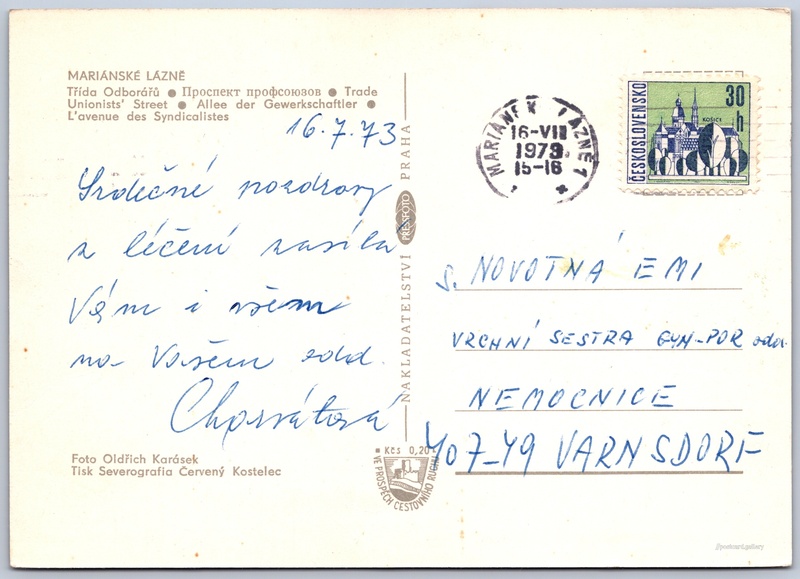 MARIÁNSKÉ LÁZNĚ
Třída Odborářů ● Проспект профсоюзов ● Trade
Unionists' Street ● Allee der Gewerkschaftler ●
L'avenue des Syndicalistes
16.7.73
Srdečné pozdravy
z léčení zasílá
Vám i všem
na Vašem odd.
Chorvátová
Foto Oldřich Karásek
Tisk Severografia Červený Kostelec
NAKLADATELSTVÍ PRESSFOTO PRAHA
Kčs 0,20
VE PROSPĚCH CESTOVNÍHO RUCHU
MARIÁNSKÉ LÁZNĚ 1
16-VII
1973
15-16
ČESKOSLOVENSKO
30
h
KOŠICE
s. NOVOTNÁ EMI
VRCHNÍ SESTRA GYN-POR odd.
NEMOCNICE
407-49 VARNSDORF
//postcard.gallery